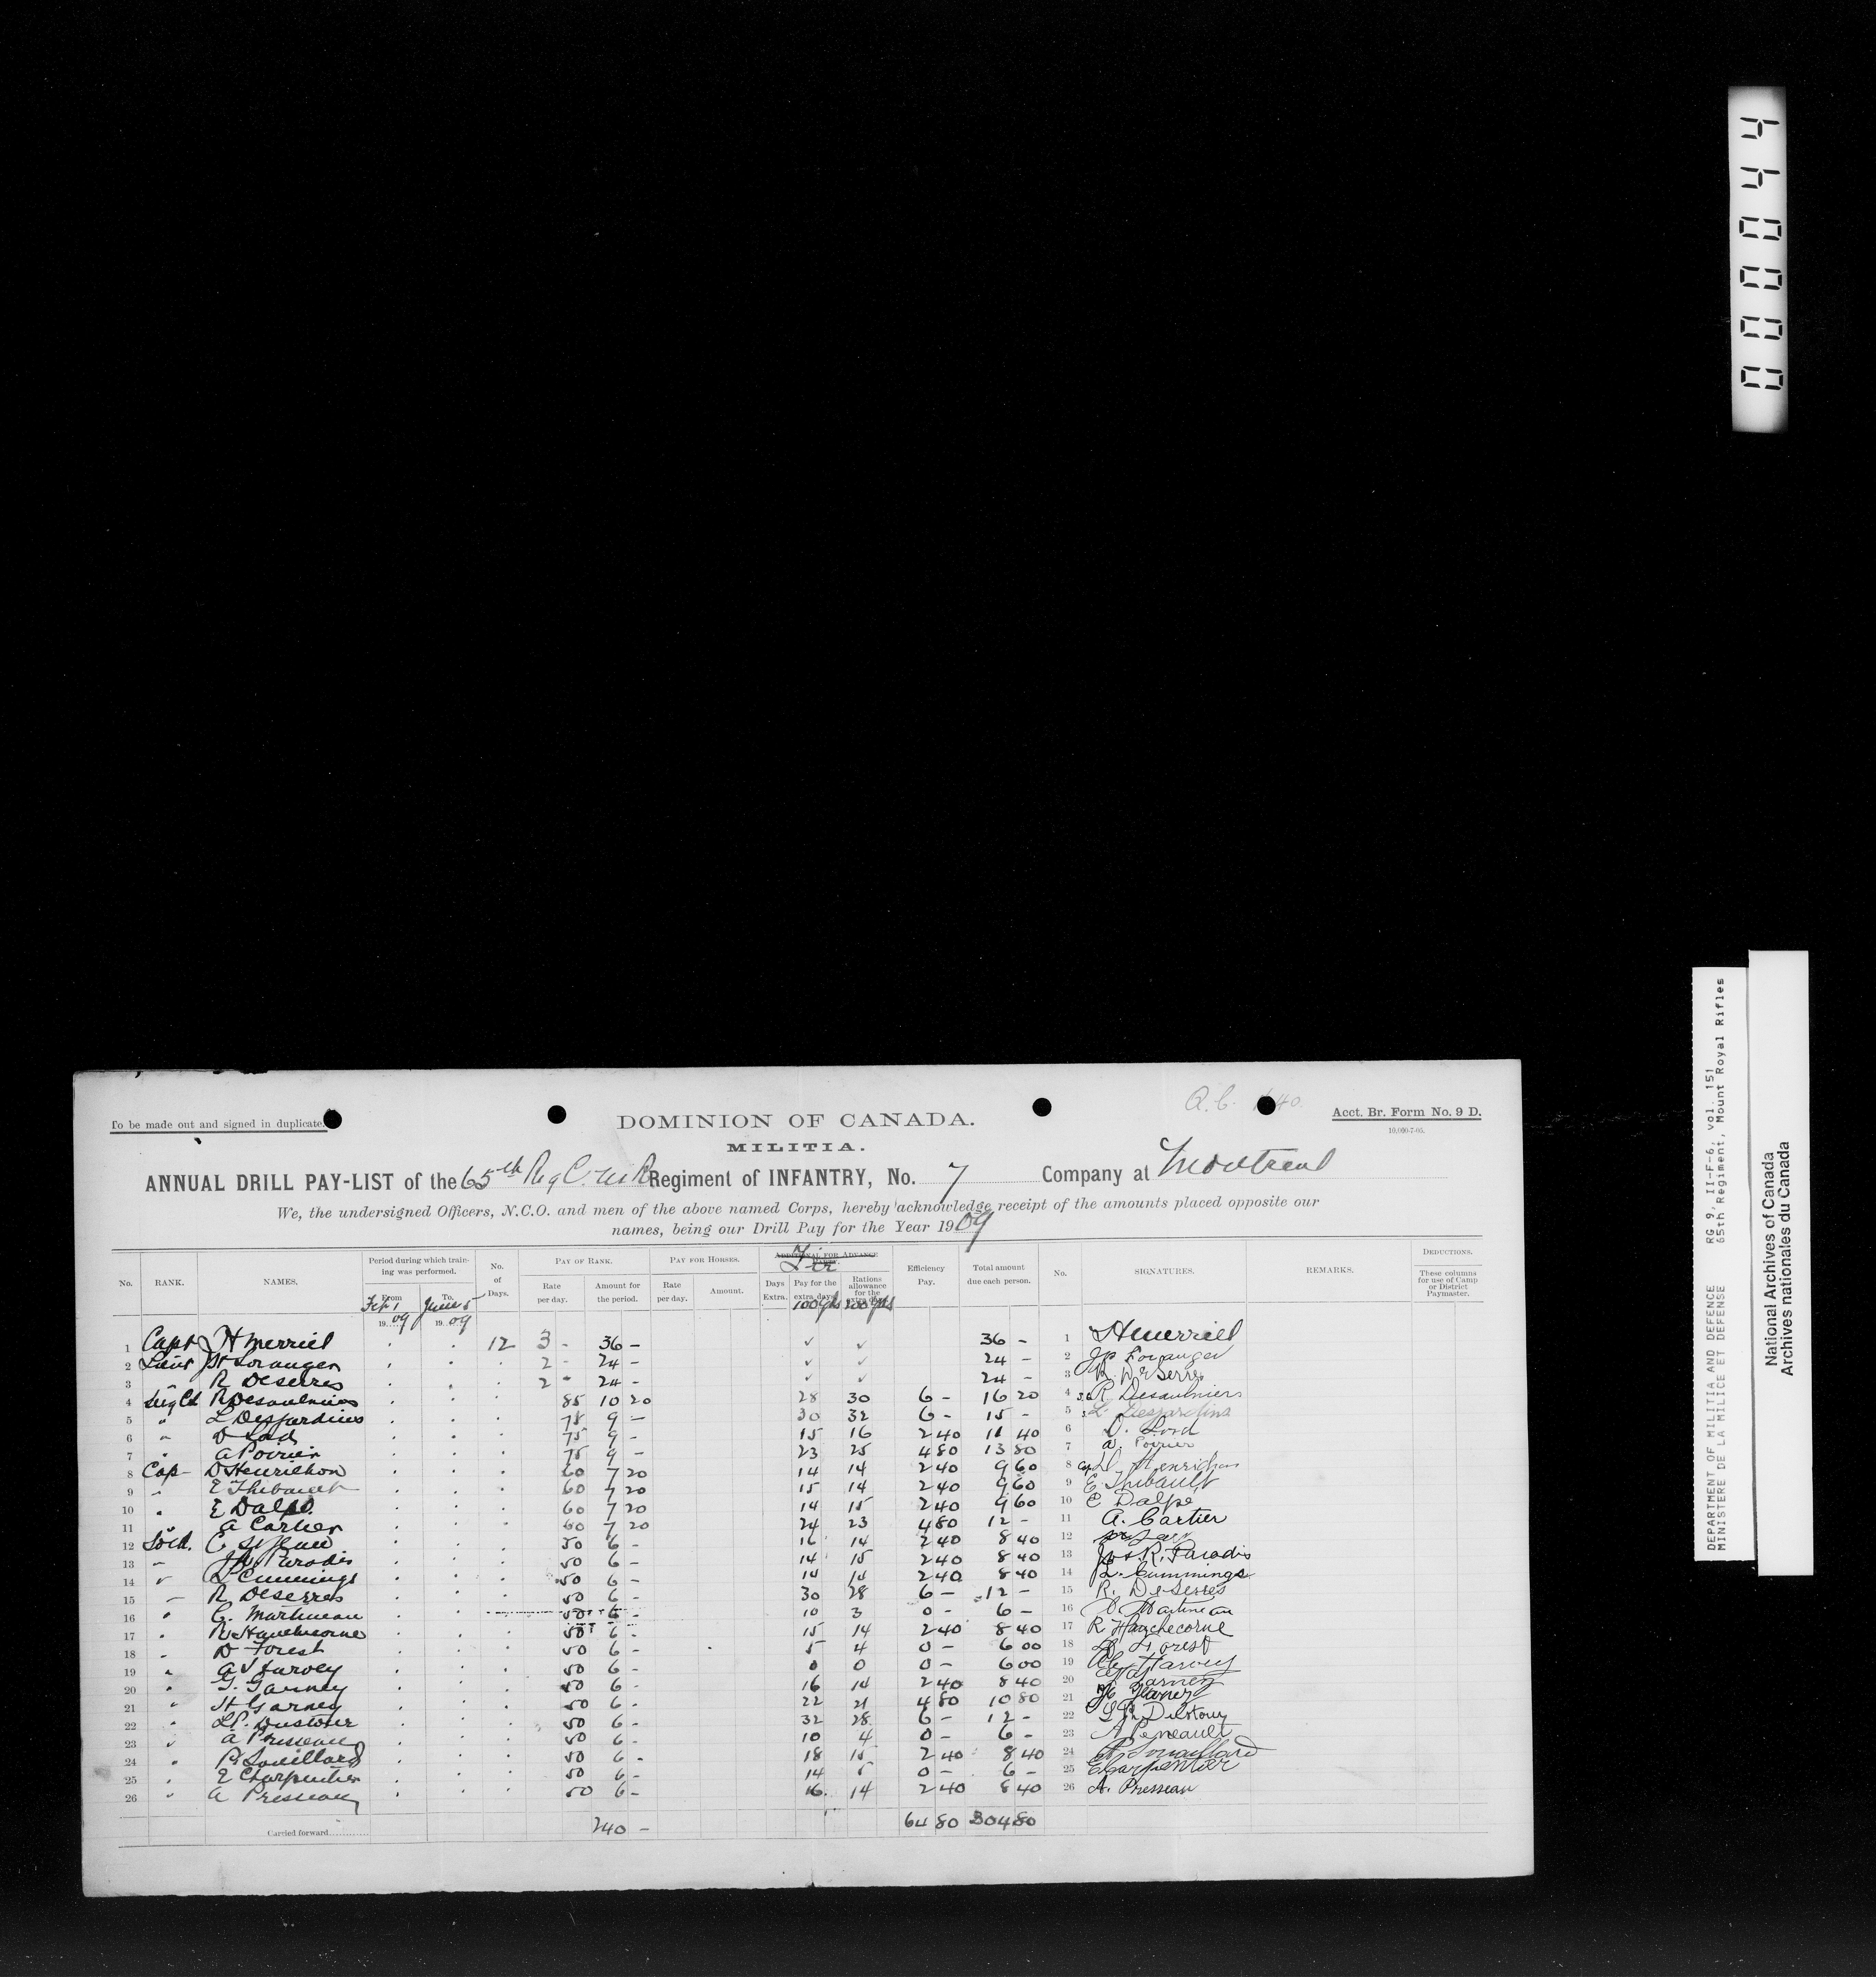 000044
To be made out and signed in duplicate.
DOMINION OF CANADA.
Acct. Br. Form No. 9 D.
10,000-7-05.
MILITIA.
ANNUAL DRILL PAY-LIST of the 65th Regiment of INFANTRY, No. 7 Company at Montreal
We, the undersigned Officers, N.C.O. and men of the above named Corps, hereby acknowledge receipt of the amounts placed opposite our
names, being our Drill Pay for the Year 1909
No. RANK. NAMES. Period during which training was performed. From 19 09 To, June 5 19 09 No. of Days. PAY OF RANK. Rate per day. Amount for the period. PAY FOR HORSES. Rate per day. Amount. ADDITIONAL FOR ADVANCE Days Extra. Pay for the extra days 100 yds Rations allowance for the extra days 200 yds Efficiency Pay. Total amount due each person. No. SIGNATURES. REMARKS. DEDUCTIONS. These columns for use of Camp or District Paymaster.
1 Capt H Merrill 12 3 - 36 - 36 - 1 H Merrill
2 Lieut Loranger 2 - 24 - 24 - 2 JP Loranger
3 " R Deserres 2 - 24 - 24 - 3 R. Deserres
4 R Desaulniers 85 10 20 28 30 6 - 16 20 4 R Desaulniers
5 " L Desjardins 75 9 - 30 32 6 - 15 - 5 L Desjardins
6 " D Lord 75 9 - 15 16 2 40 11 40 6 D. Lord
7 " A Poirier 75 9 - 23 25 4 80 13 80 7 A. Poirier
8 Cap - D Henrichon 60 7 20 14 14 2 40 9 60 8 D Henrichon
9 " E Thibault 60 7 20 15 14 2 40 9 60 9 E Thibault
10 " E Dalpé 60 7 20 14 15 2 40 9 60 10 E Dalpé
11 " A Cartier 60 7 20 24 23 4 80 12 - 11 A. Cartier
12 Sold. C St Jean 50 6 - 16 14 2 40 8 40 12
13 " Paradis 50 6 - 14 15 2 40 8 40 13 Jos. R. Paradis
14 " L Cummings 50 6 - 14 14 2 40 8 40 14 L. Cummings
15 " R Deserres 50 6 - 30 28 6 - 12 - 15 R. Deserres
16 " C. Martineau 50 6 - 10 3 0 - 6 - 16 Martineau
17 " R Hauchecorne 50 6 - 15 14 2 40 8 40 17 R Hauchecorne
18 " D Forest 50 6 - 5 4 0 - 6 00 18 D Forest
19 " Harvey 50 6 - 0 0 0 - 6 00 19 Harvey
20 " G. Garney 50 6 - 16 14 2 40 8 40 20 Garney
21 " H Garney 50 6 - 22 21 4 80 10 80 21
22 " L.P. 50 6 - 32 28 6 - 12 - 22
23 " A 50 6 - 10 4 0 - 6 - 23 A
24 " 50 6 - 18 15 2 40 8 40 24
25 " E Charpentier 50 6 - 14 5 0 - 6 - 25 E Carpentier
26 " A Presseau 50 6 - 16 14 2 40 8 40 26 A. Presseau
Carried forward 240 - 64 80 304 80
DEPARTMENT OF MILITIA AND DEFENCE RG 9, II-F-6, vol. 151
MINISTERE DE LA MILICE ET DEFENSE 65th Regiment, Mount Royal Rifles
National Archives of Canada
Archives nationales du Canada